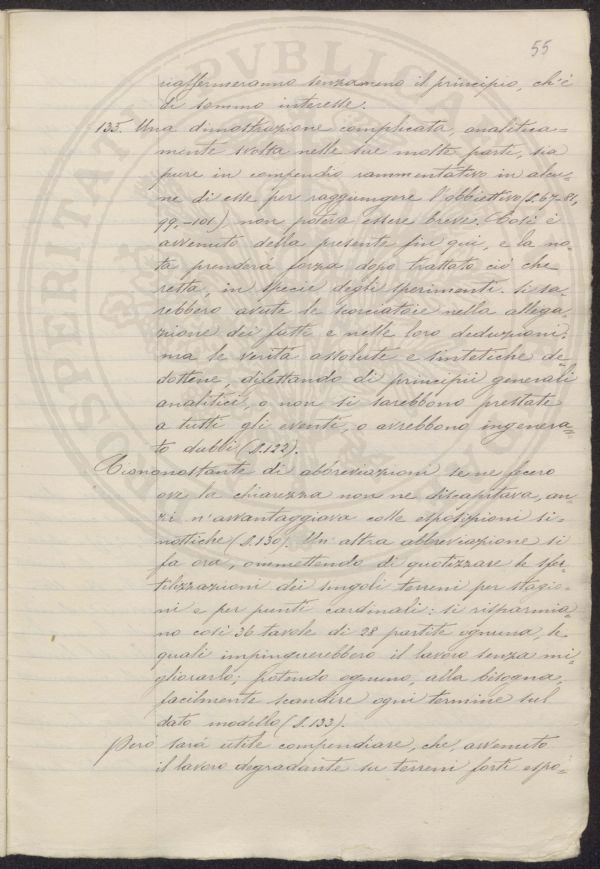 55
riaffermeranno senzameno il principio, ch'è
di sommo interesse.
135. Una dimostrazione complicata, analitica=
mente svolta nelle sue molte parti, sia
pure in compendio rammentativo in alcu=
ne di esse per raggiungere l'obbiettivo (§.67-81,
99,-101) non poteva essere breve. Così è
avvenuto della presente fin qui, e la no=
ta prenderà forza dopo trattato ciò che
resta, in specie degli sperimenti. Si sa=
rebbero avute le scorciatoie nella allega=
zione dei fatti e nelle loro deduzioni:
ma le verità assolute e sintetiche de=
dottene, difettando di principii generali
analitici, o non si sarebbono prestate
a tutti gli eventi, o avrebbono ingenera=
to dubbi (§.122).
Ciononostante di abbreviazioni se ne fecero
ove la chiarezza non ne discapitava, an=
zi n'avvantaggiava colle esposizioni si=
nottiche (§.130). Un'altra abbreviazione si
fa ora, ommettendo di quotizzare le sfer=
tilizzazioni dei singoli terreni per stagio=
ni e per punti cardinali: si risparmia=
no così 36 tavole di 28 partite ognuna, le
quali impinguerebbero il lavoro senza mi=
gliorarlo; potendo ognuno, alla bisogna,
facilmente scandire ogni termine sul
dato modello (§.133).
Però sarà utile compendiare, che, avvenuto
il lavoro degradante su terreni forti espo=